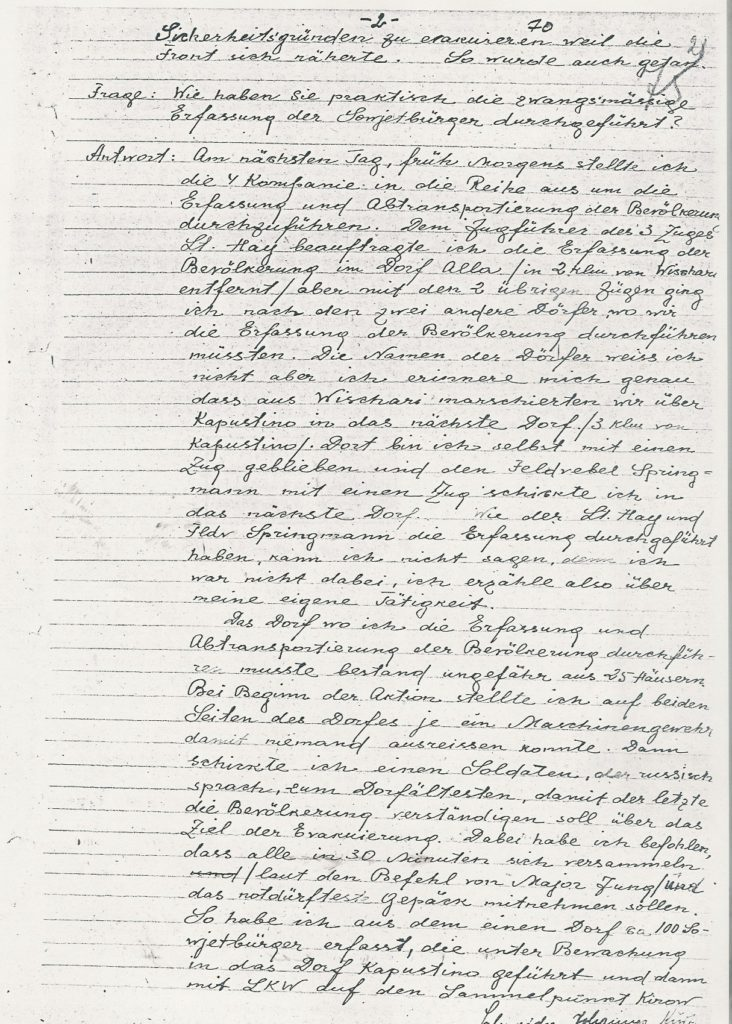 -2-
70
2
Sicherheitsgründen zu evakuieren weil die
Front sich näherte. So wurde auch getan.
Frage: Wie haben Sie praktisch die zwangsmässige
Erfassung der Sowjetbürger durchgeführt?
Antwort: Am nächsten Tag, früh Morgens stellte ich
die 4 Kompanie in die Reihe aus um die
Erfassung und Abtransportierung der Bevölkerun
durchzuführen. Dem Zugführer des 3 Zuges
Lt. Hay beauftragte ich die Erfassung der
Bevölkerung im Dorf Alla /in 2 klm von Wischari
entfernt/ aber mit den 2 übrigen Zügen ging
ich nach den zwei andere Dörfer wo wir
die Erfassung der Bevölkerung durchführen
müssten. Die Namen der Dörfer weiss ich
nicht aber ich erinnere mich genau
dass aus Wischari marschierten wir über
Kapustino in das nächste Dorf /3 klm von
Kapustino/. Dort bin ich selbst mit einen
Zug geblieben und den Feldvebel Spring=
mann mit einen Zug schickte ich in
das nächste Dorf. Wie der Lt. Hay und
Fldv Springmann die Erfassung durchgeführt
haben, kann ich nicht sagen, denn ich
war nicht dabei, ich erzähle also über
meine eigene Tätigkeit.
Das Dorf wo ich die Erfassung und
Abtransportierung der Bevölkerung durchfüh-
ren musste bestand ungefähr aus 25 Häusern
Bei Beginn der Aktion stellte ich auf beiden
Seiten des Dorfes je ein Maschinengewehr
damit niemand ausreissen konnte. Dann
schickte ich einen Soldaten, der russisch
sprach, zum Dorfältesten, damit der letzte
die Bevölkerung verständigen soll über das
Ziel der Evakuierung. Dabei habe ich befohlen,
dass alle in 30 Minuten sich versammeln
und /laut den Befehl von Major Jung/ und
das notdürftigste Gepäck mitnehmen sollen.
So habe ich aus dem einen Dorf ca. 100 So-
wjetbürger erfasst, die unter Bewachung
in das Dorf Kapustino geführt und dann
mit LKW auf den Sammelpunkt Kirow